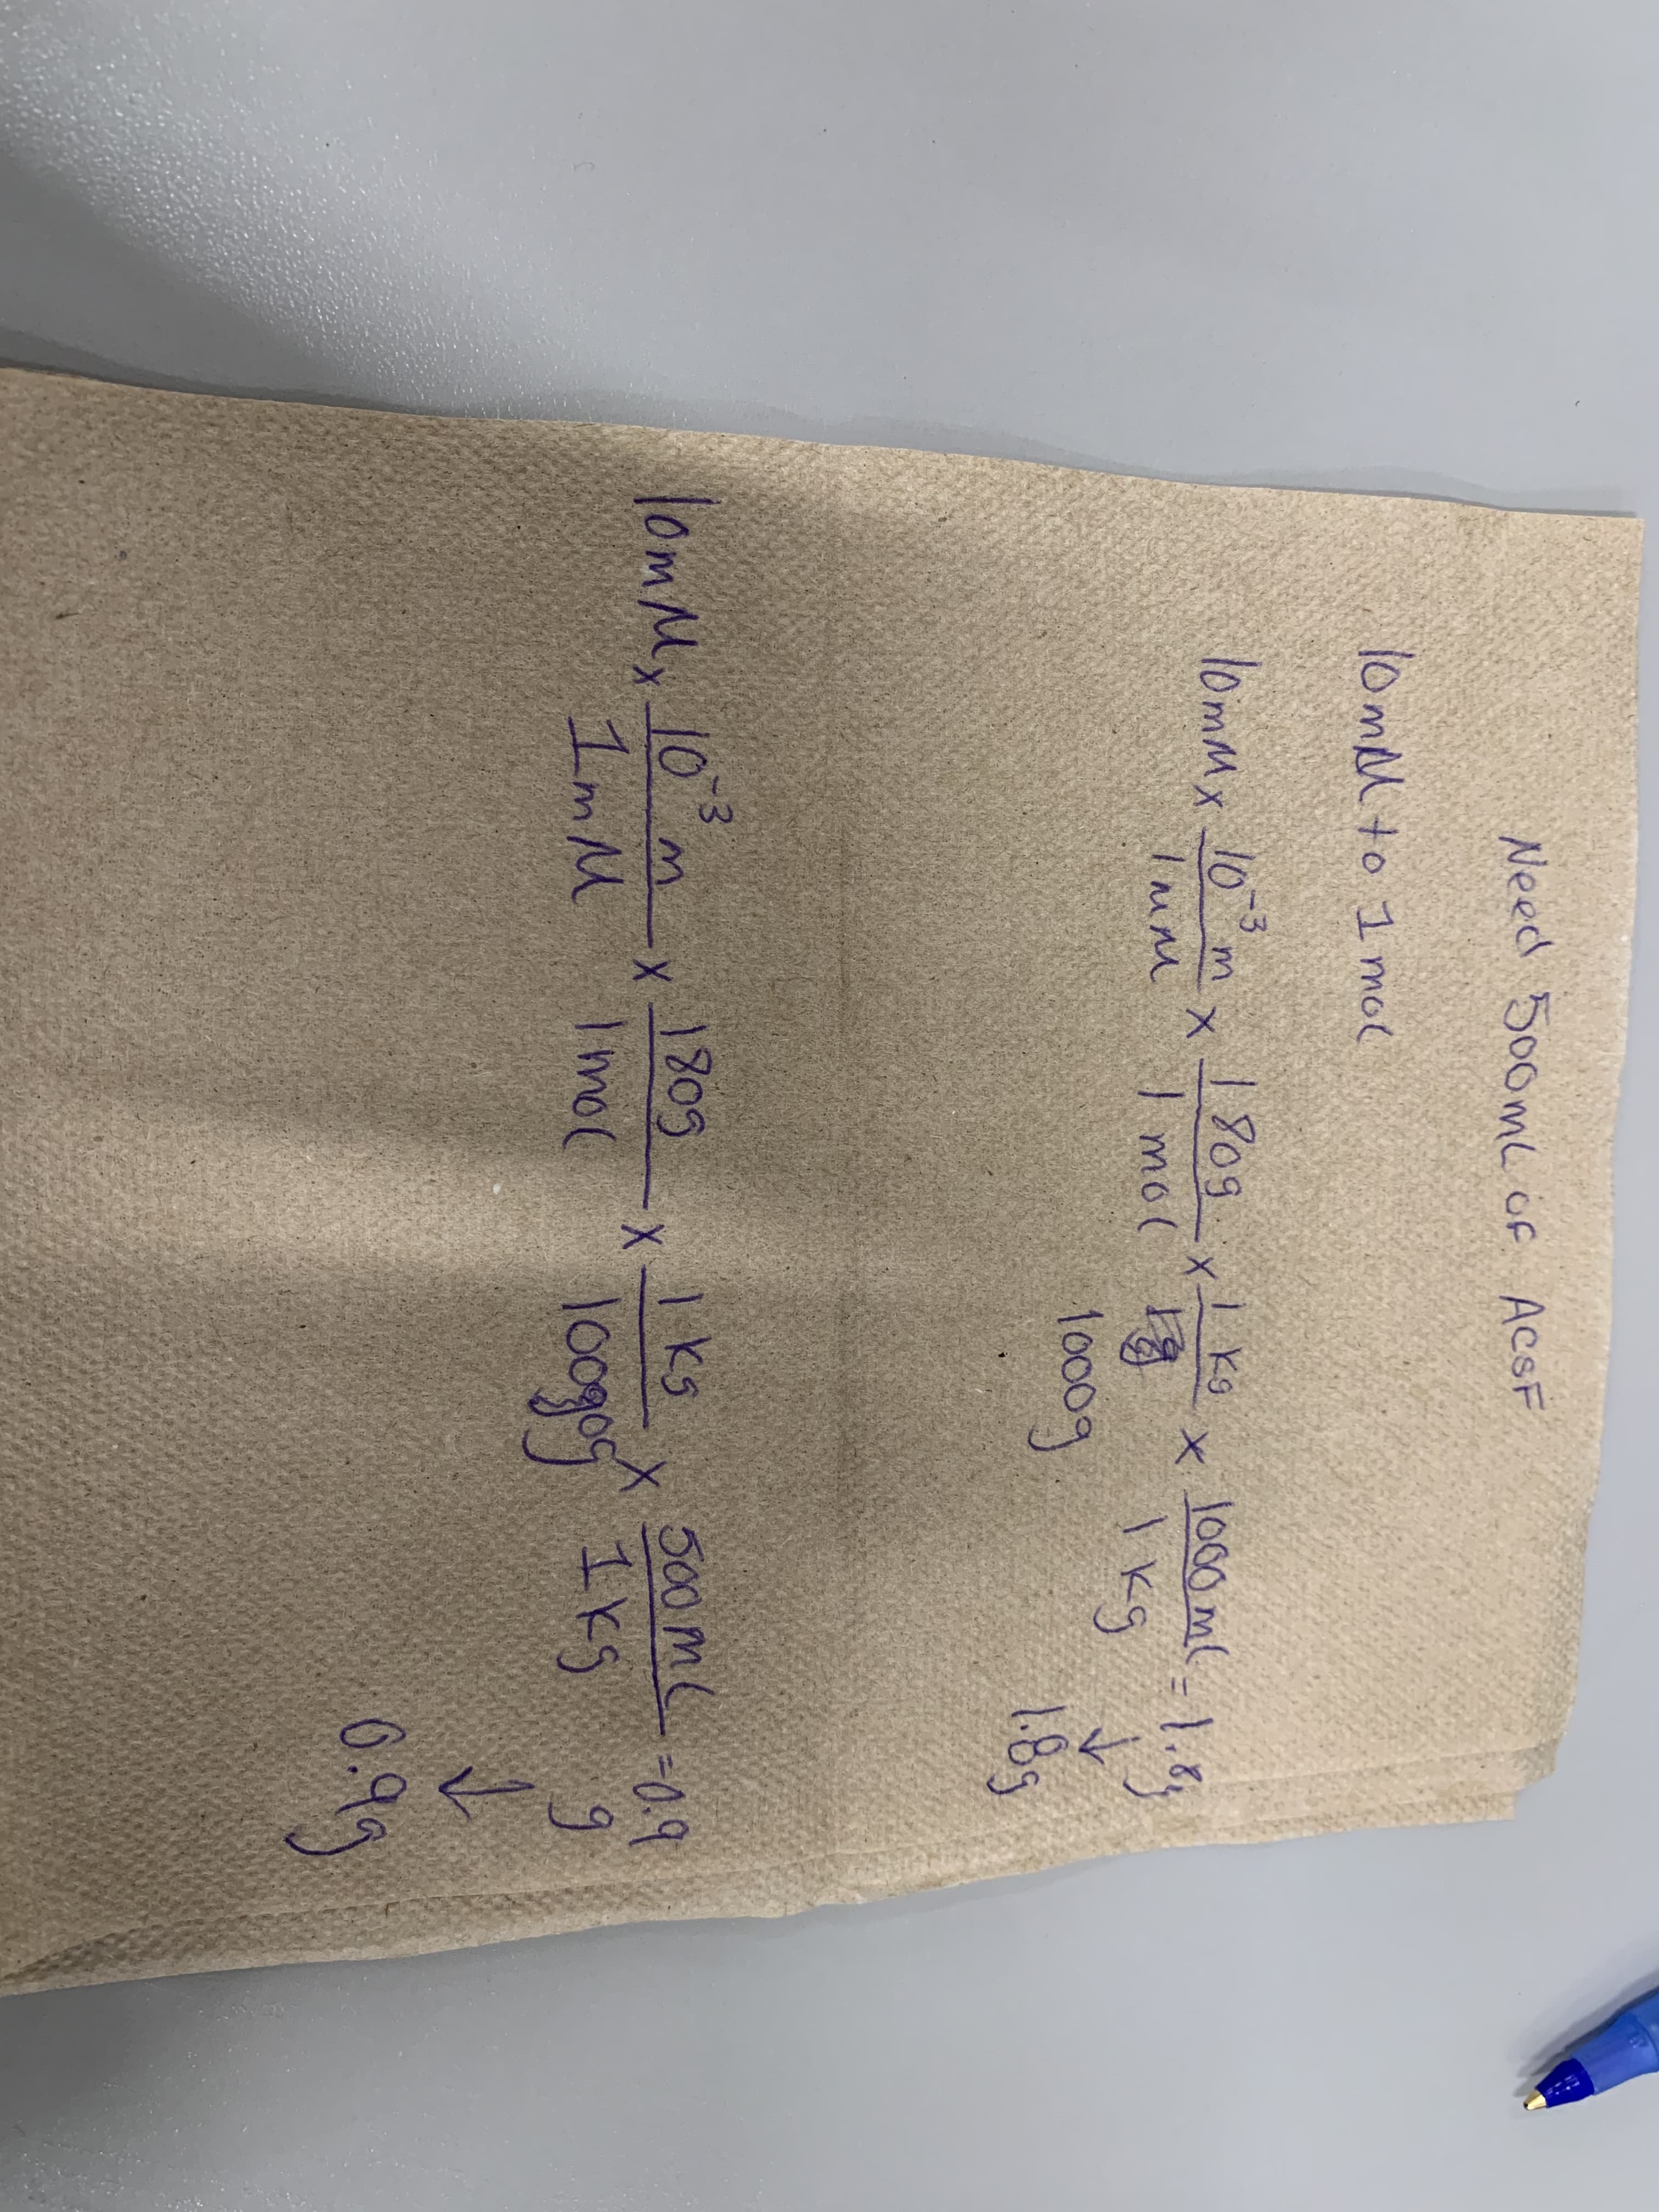 Need 500mL of ACSF
10mM to 1 mol
10mM x 10⁻³ m / 1mM x 180g / 1 mol x 1 kg / 1000g x 1000ml / 1 kg = 1.8g
↓
1.8g
10mM x 10⁻³ m / 1mM x 180g / 1mol x 1 kg / 1000g x 500ml / 1kg = 0.9
g
↓
0.9g